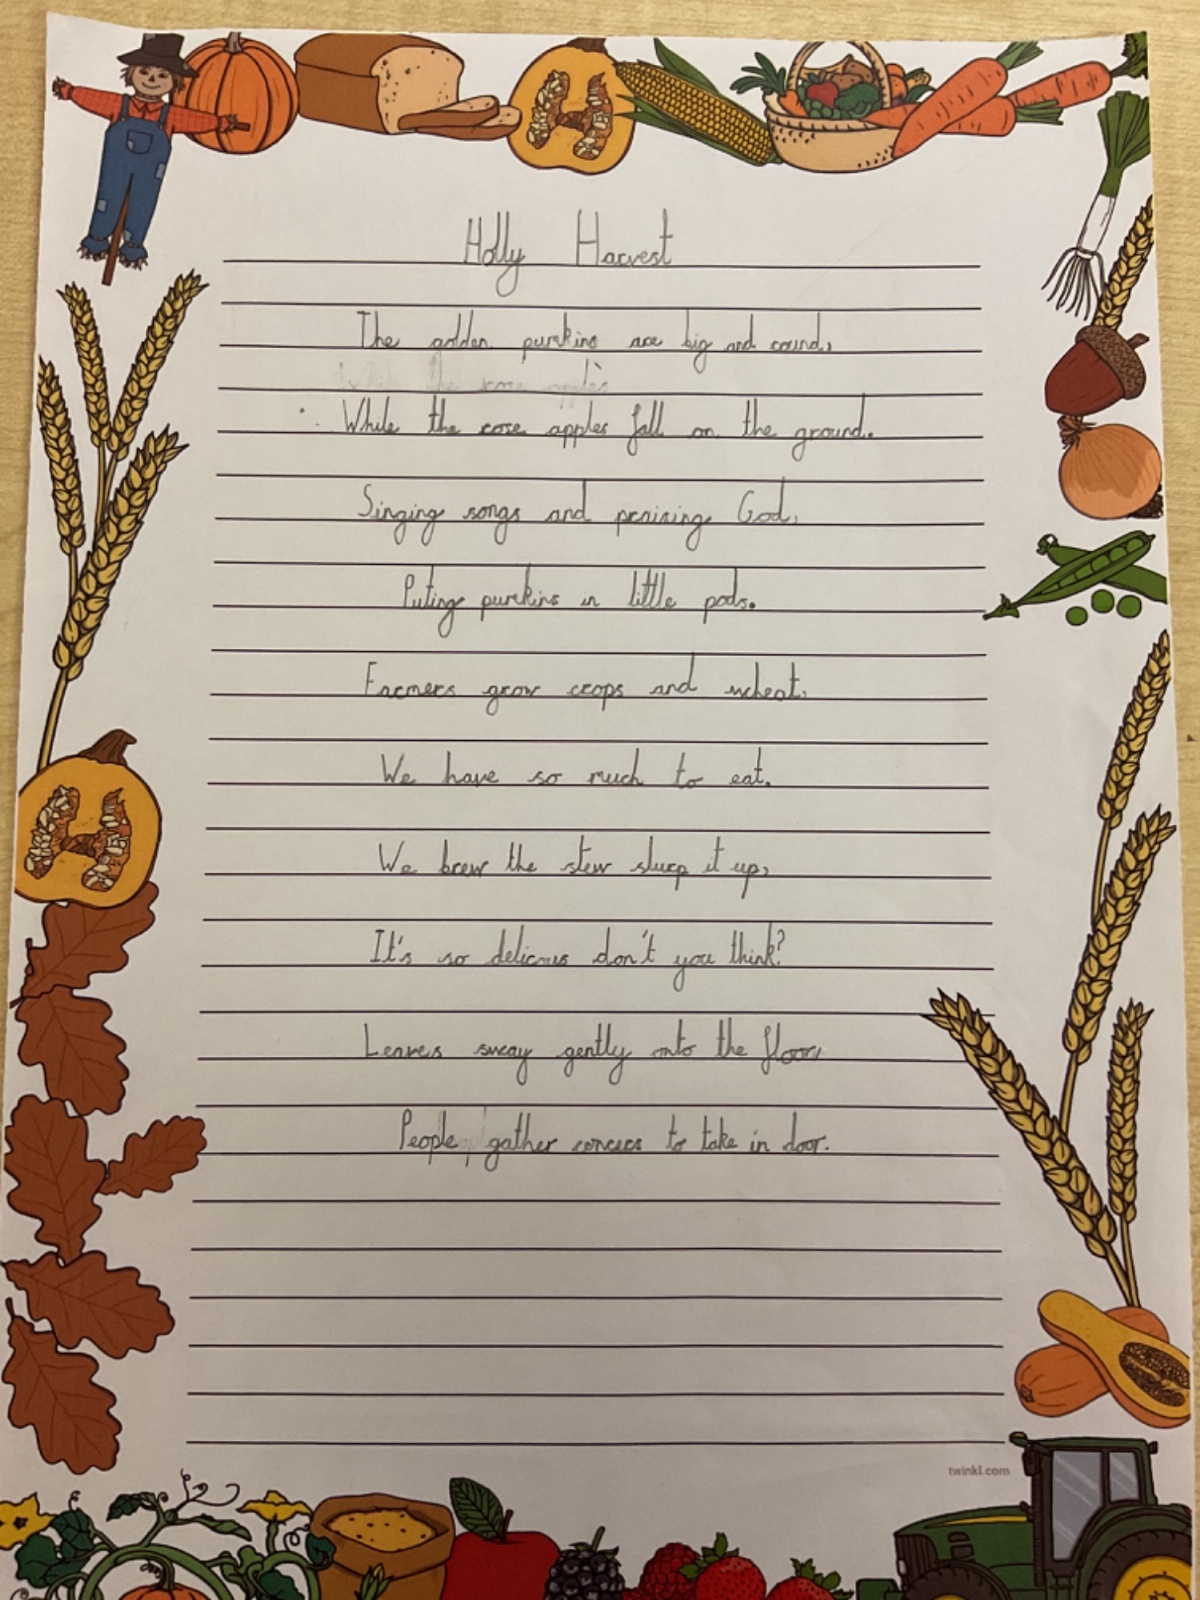 Holly Harvest
The golden pumkins are big and round,
While the rose apples
While the rose apples fall on the ground.
Singing songs and praising God,
Puting pumkins in little pods.
Farmers grow crops and wheat,
We have so much to eat.
We brew the stew slurp it up,
It's so delicious don't you think?
Leaves sway gently onto the floor,
People gather concers to take in door.
twinkl.com